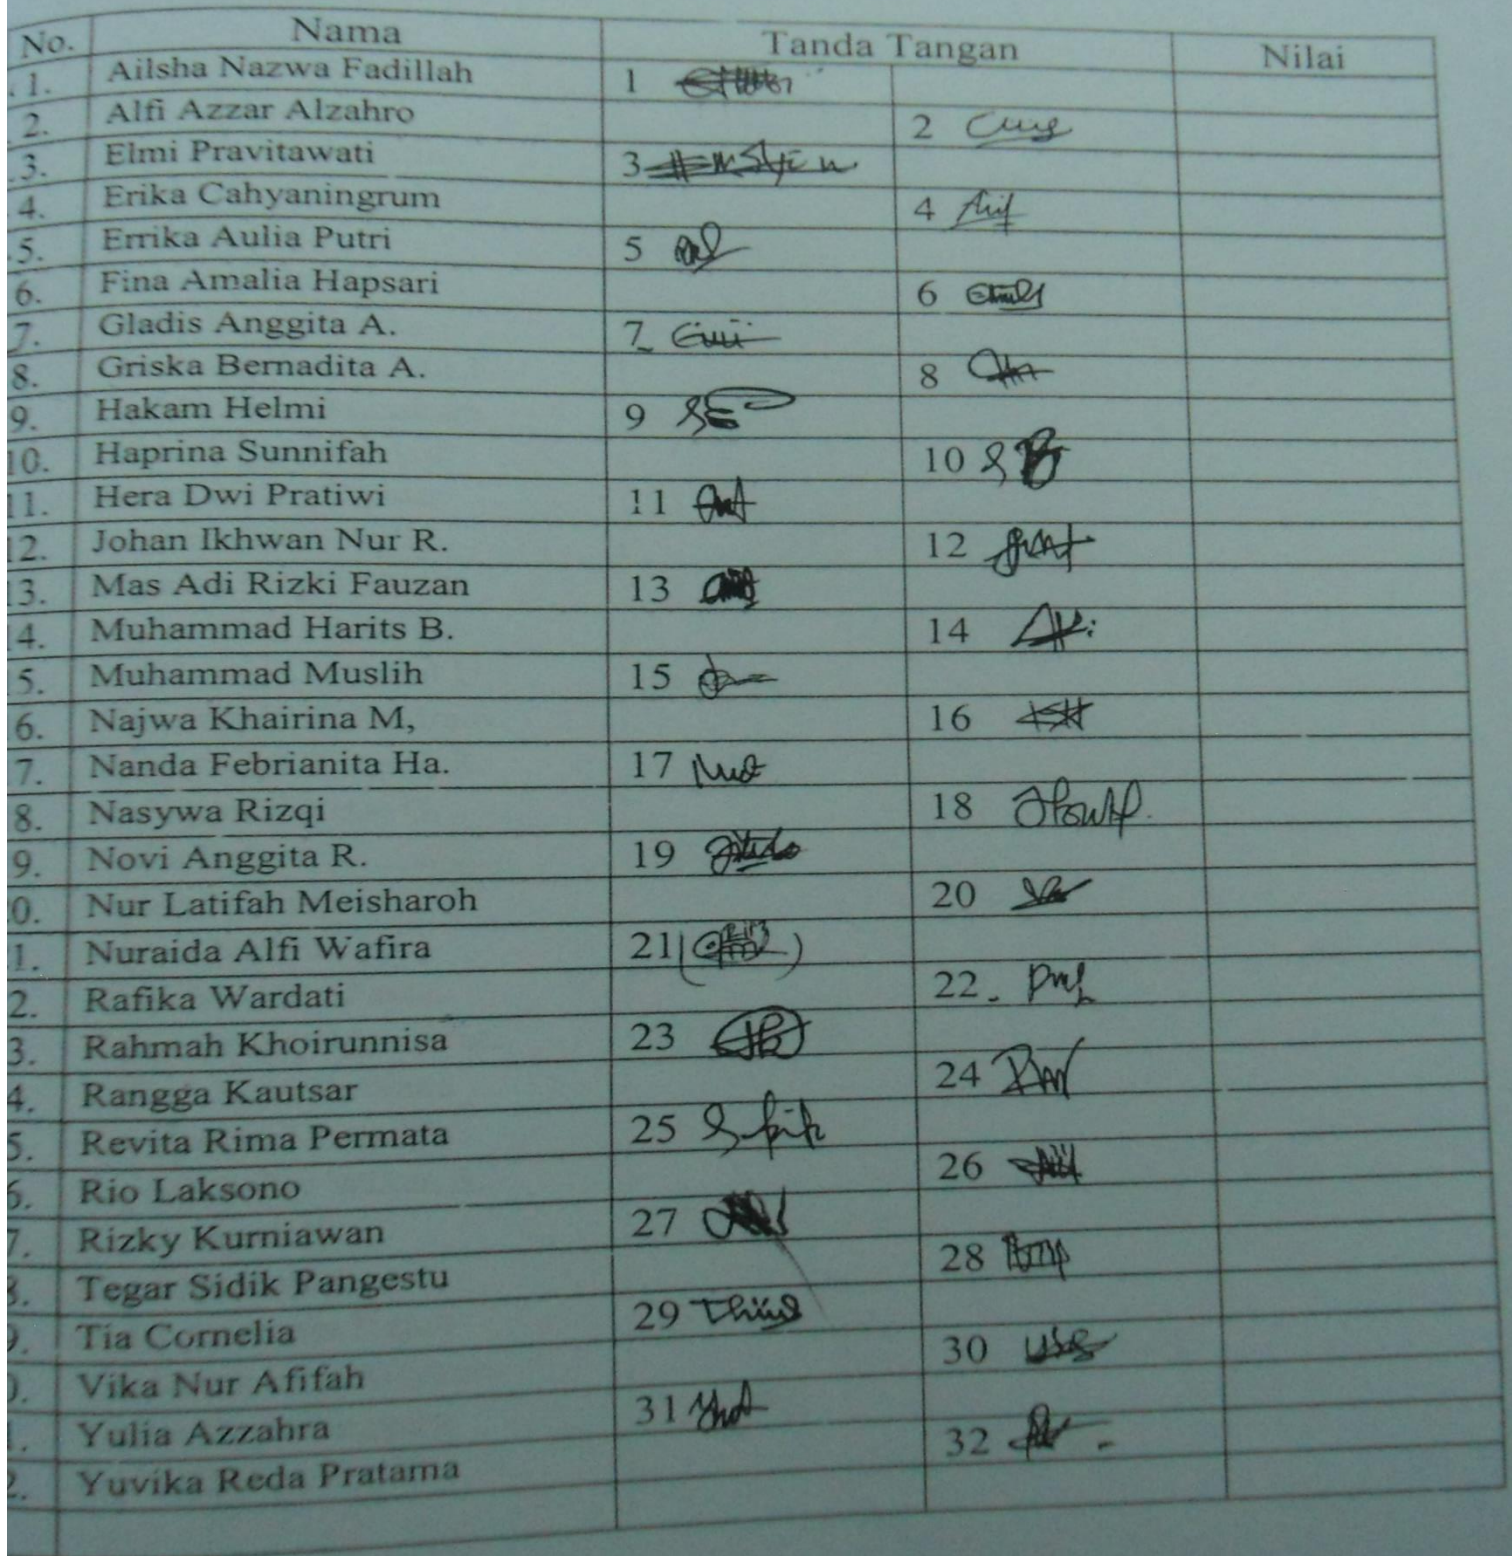 No. Nama Tanda Tangan Nilai
1. Ailsha Nazwa Fadillah 1
2. Alfi Azzar Alzahro 2
3. Elmi Pravitawati 3
4. Erika Cahyaningrum 4
5. Errika Aulia Putri 5
6. Fina Amalia Hapsari 6
7. Gladis Anggita A. 7
8. Griska Bernadita A. 8
9. Hakam Helmi 9
10. Haprina Sunnifah 10
11. Hera Dwi Pratiwi 11
12. Johan Ikhwan Nur R. 12
3. Mas Adi Rizki Fauzan 13
4. Muhammad Harits B. 14
5. Muhammad Muslih 15
6. Najwa Khairina M, 16
7. Nanda Febrianita Ha. 17
8. Nasywa Rizqi 18
9. Novi Anggita R. 19
0. Nur Latifah Meisharoh 20
1. Nuraida Alfi Wafira 21
2. Rafika Wardati 22
3. Rahmah Khoirunnisa 23
4. Rangga Kautsar 24
5. Revita Rima Permata 25
6. Rio Laksono 26
7. Rizky Kurniawan 27
8. Tegar Sidik Pangestu 28
9. Tia Cornelia 29
0. Vika Nur Afifah 30
1. Yulia Azzahra 31
2. Yuvika Reda Pratama 32